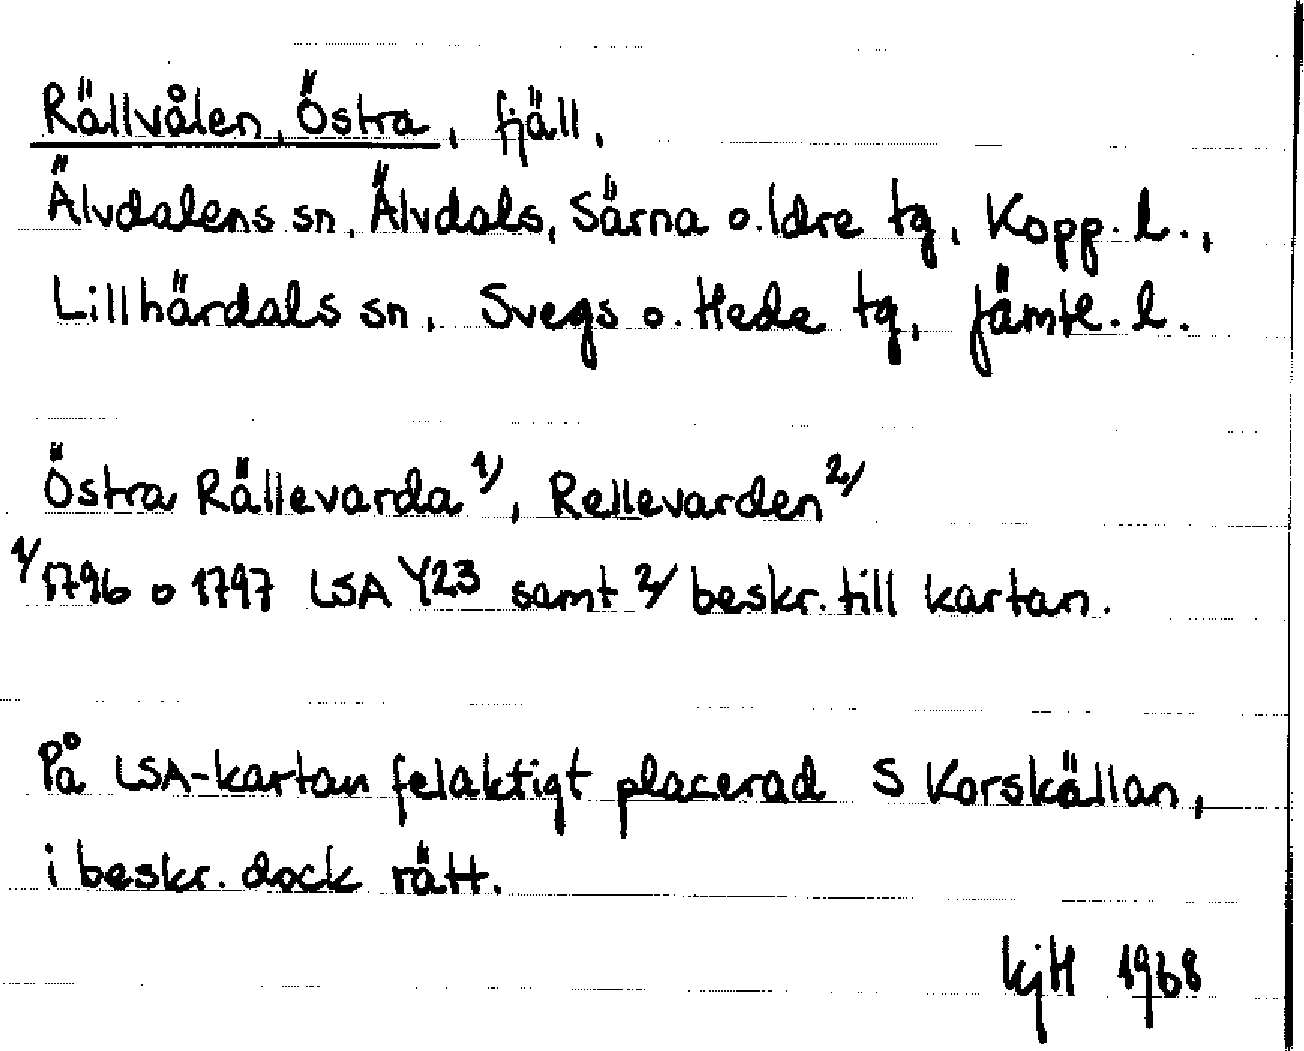 Rällvålen, Östra, fjäll,
Älvdalens sn, Älvdals, Särna o. Idre tg, Kopp. l.,
Lillhärdals sn, Svegs o. Hede tg, Jämtl. l.
Östra Rällevarda 1/, Rellevarden 2/
1/ 1796 o 1797 LSA Y23 samt 2/ beskr. till kartan.
På LSA-kartan felaktigt placerad S Korskällan,
i beskr. dock rätt.
kjH 1968